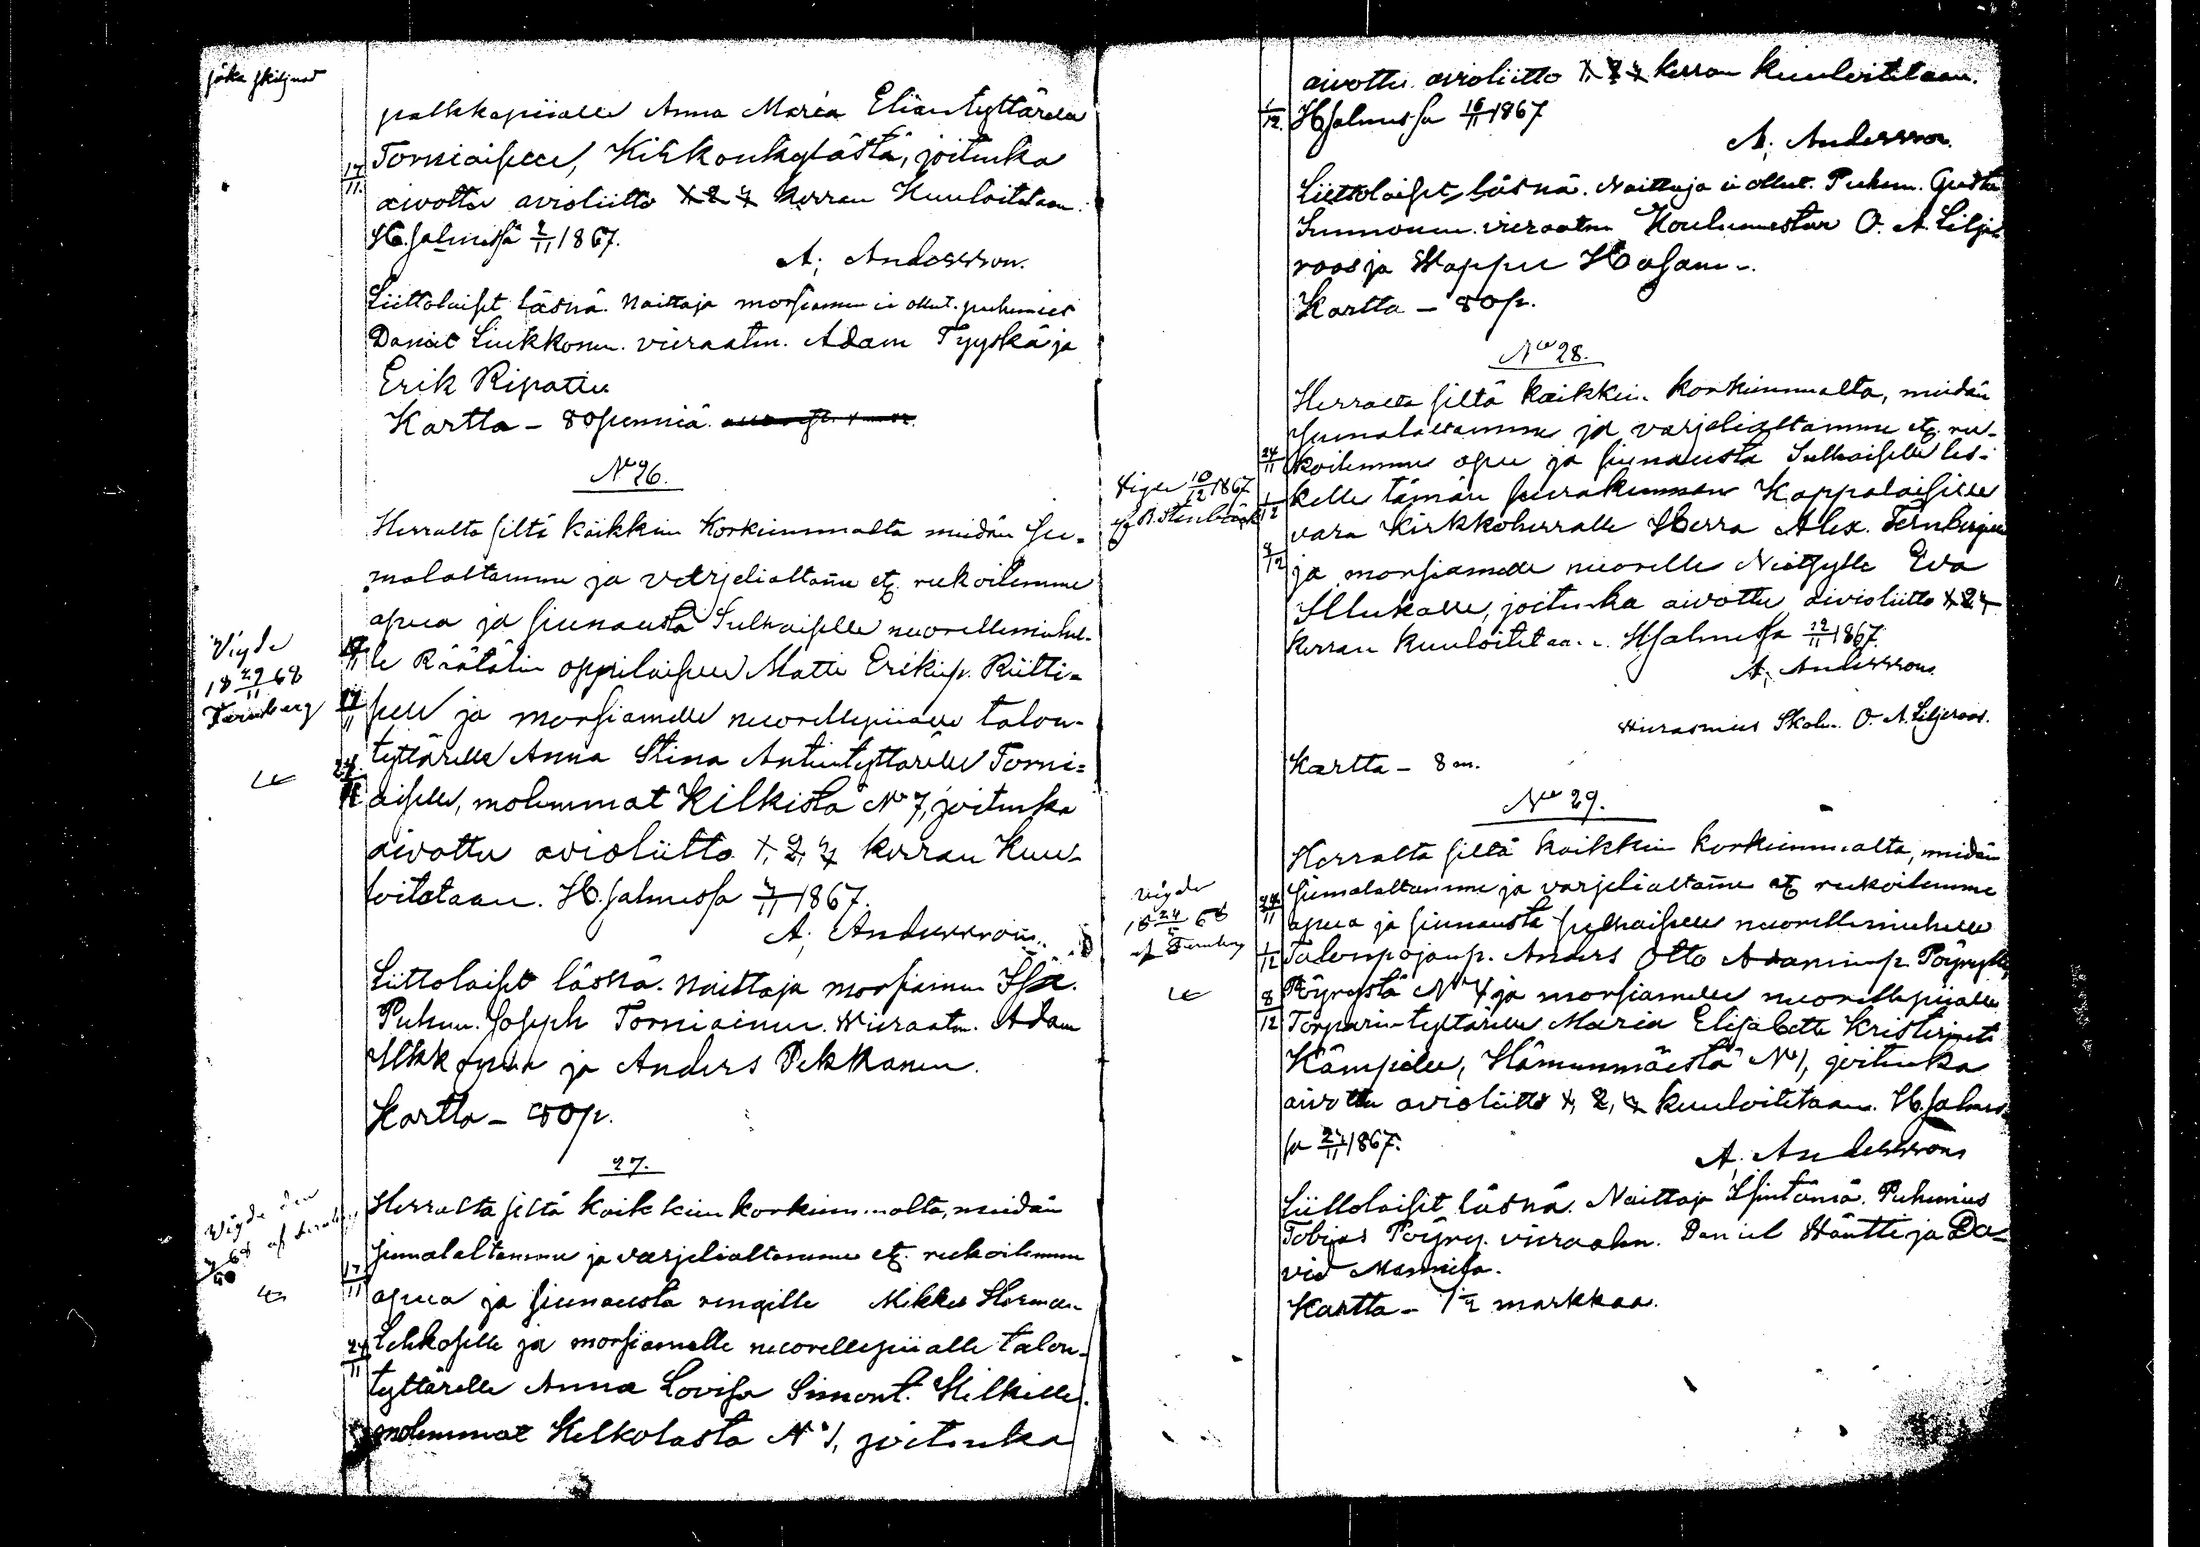 palkkapiialle Anna Maria Eliantyttärelle
17/11 Torniaiselle, Kirkonkylästä, joitenka
aivottu avioliitto 1 2 3 kerran Kuuloitetaan.
H.Jalmessa 2/11 1867.
A. Andersson.
Liittolaiset läsnä. Naittaja morsiamen ei ollut. puhemies
Daniel Liukkonen. vieraatm. Adam Tyyskä ja
Erik Ripatti
Kartta - 80 penniä.
No 26.
Herralta siltä kaikkein Korkeimmalta meidän Ju-
malaltamme ja varjelialtamme etc. rukoilemme
apua ja siunausta Sulhaiselle nuorellemiehel-
le Räätälin oppilaiselle Matti Erikinp. Riitti-
selle ja morsiamelle nuorellepiialle talon-
tyttärelle Anna Stina Antintyttärelle Torni-
aiselle, molemmat Kilkistä No 7, joitenka
aivottu avioliitto 1, 2, 3 kerran Kuu-
loitetaan. H.Jalmessa 3/11 1867.
A. Andersson.
Vigde
18 29/11 68
Ternberg
Liittolaiset läsnä. Naittaja morsiamen Isä.
Puhem. Joseph Torniainen. Wieraatm. Adam
Ukkonen ja Anders Pekkanen.
Kartta - 80 p.
27.
Herralta siltä kaikkein korkeimmalta, meidän
Jumalaltamme ja varjelialtamme etc. rukoilemme
17/11 apua ja siunausta rengille Mikkel Herman
24/11 Lehkoselle ja morsiamelle nuorellepiialle talon-
tyttärelle Anna Lovisa Simont. Hilkille
molemmat Kelkolasta No 1, joitenka
Vigde den
aivottu avioliitto 1, 2, 3 kerran kuuloitetaan.
1/12 HJalmessa 10/11 1867
A. Andersson.
Liittolaiset läsnä. Naittaja ei ollut. Puhem. Gusta
Immonen. vieraatm Koulumestar O. A. Lilje
roos ja Wappu Hasanen.
Kartta - 80 p.
No 28.
Herralta siltä kaikkein korkeimmalta, meidän
Jumalaltamme ja varjelialtamme etc. ru-
24/11 koilemme apua ja siunausta Sulhaiselle les-
1/12 kelle tämän seurakunnan Kappalaiselle
vara Kirkkoherralle Herra Alex. Ternbergille
8/12 ja morsiamelle nuorelle Neitsylle Eva
Illukalle, joitenka aivottu avioliitto 1 2 3
kerran kuuloitetaan. HJalmessa 12/11 1867.
A. Andersson
Vigde 10/12 1867
af B. Stenbäck
Wierasmies Skolm. O. A. Liljeroos.
Kartta - 8 m.
No 29.
Herralta siltä kaikkein korkeimmalta, meidän
Jumalaltamme ja varjelialtamme etc rukoilemme
24/11 apua ja siunausta sulhaiselle nuorellemiehelle
1/12 Talonpojanp. Anders Otto Adaminp. Pöyrylle
8/12 Pöyrystä No 4 ja morsiamelle nuorellepiialle
Torparin-tyttärelle Maria Elisabetta Kristerint.
Kämpille, Hämunmäestä No 1, joitenka
aivottu avioliitto 1, 2, 3 kuuloitetaan. H.Jalmes-
sa 23/11 1867.
A. Andersson
Vigde
18 24/5 68
af Ternberg
Liittolaiset läsnä. Naittaja Isintämä. Puhemies
Tobias Pöyry. vieraatm. Daniel Häntti ja Da-
vid Mannila.
Kartta - 1 1/2 markkaa.